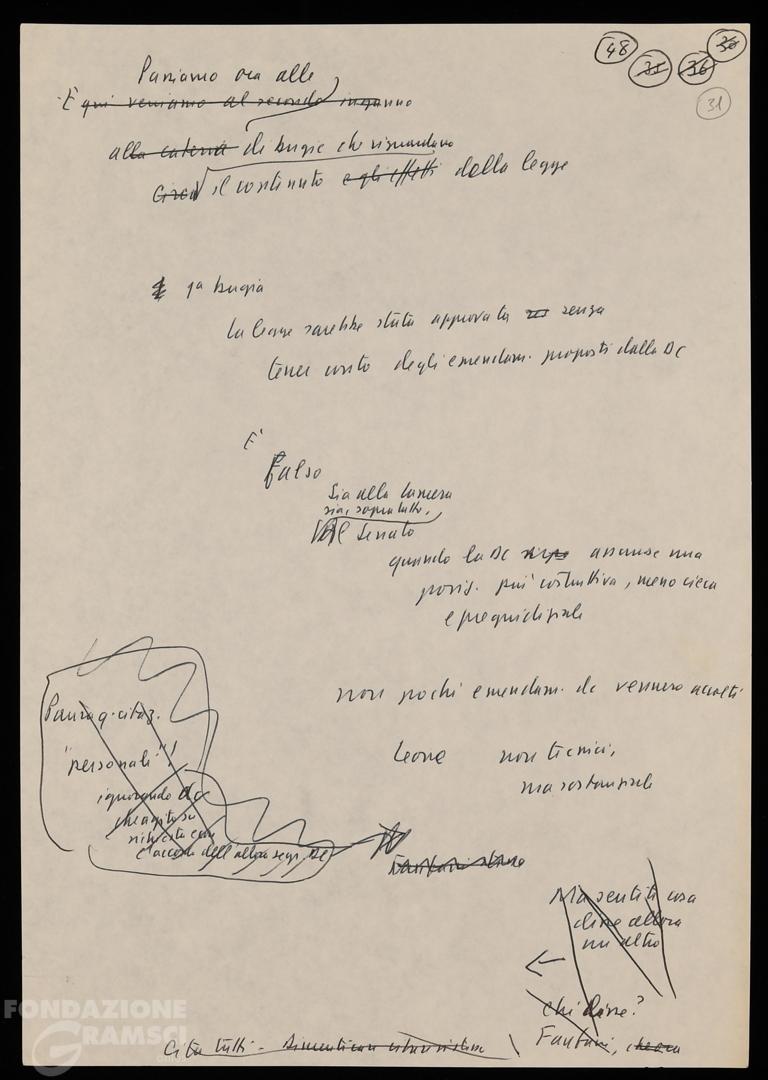 48 35 36 30
31
Passiamo ora alle
E qui veniamo al secondo inganno
alla catena di bugie che riguardano
Circa il contenuto e gli effetti della legge
1a bugia
La legge sarebbe stata approvata senza
tener conto degli emendam. proposti dalla DC
E'
Falso
Sia alla Camera
sia, sopratutto,
al Senato
quando la DC assunse una
posiz. più costruttiva, meno cieca
e pregiudiziale
non pochi emendam. dc vennero accolti
Leone non tecnici,
ma sostanziali
citaz.
"personali"!
ignorando
che agito su
richiesta e con
l'accordo dell'allora segr. DC
Ma sentite cosa
disse allora
un altro
Chi disse?
Fanfani,
Cita tutti - Dimenticare
FONDAZIONE
GRAMSCI